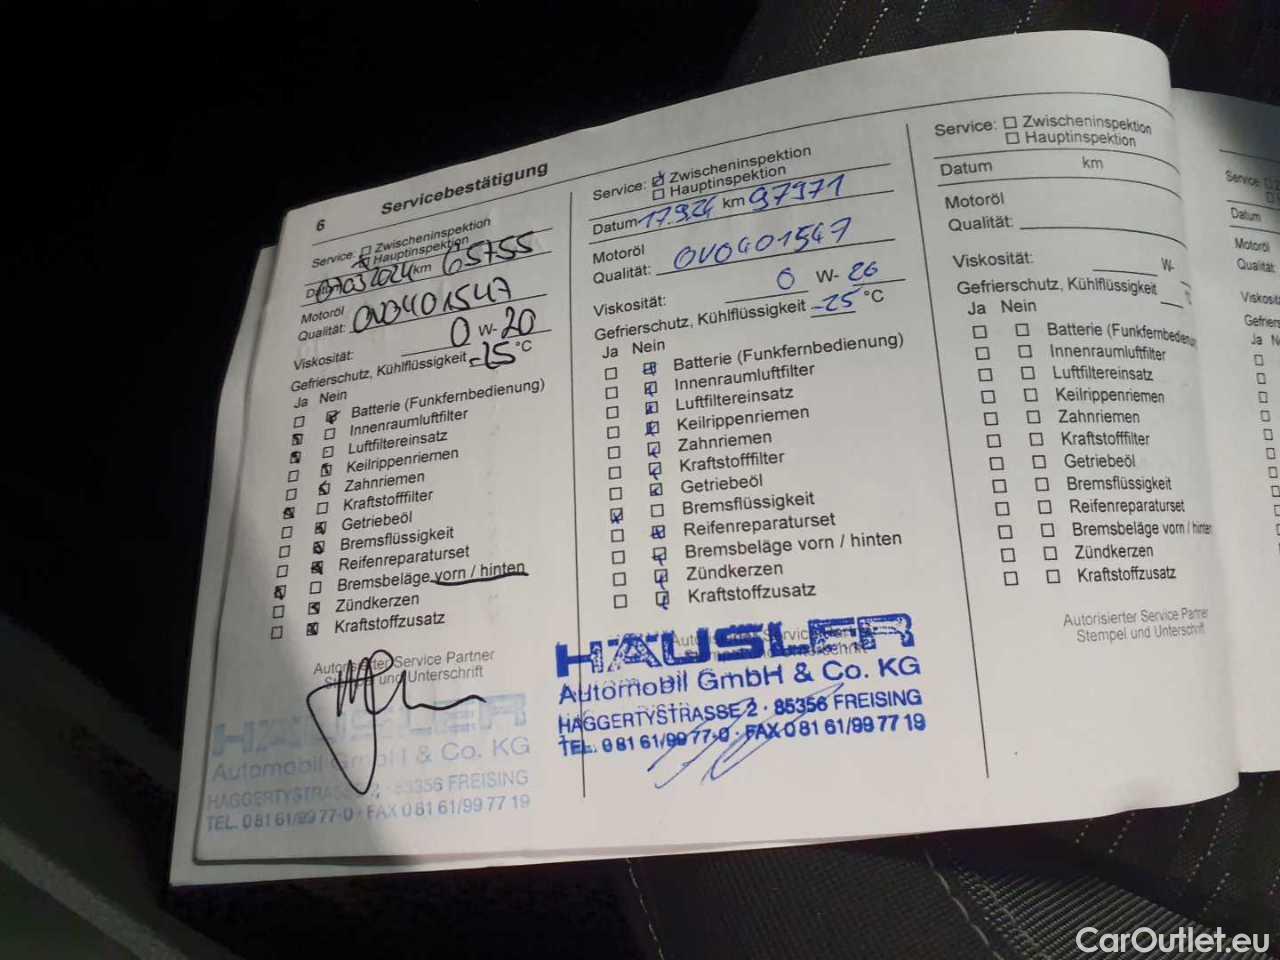 6 Servicebestätigung
Service: Zwischeninspektion
Hauptinspektion
07.03.2024 km 65755
Motoröl
Qualität: 0V0401547
Viskosität: 0 W- 20
Gefrierschutz, Kühlflüssigkeit -25 °C
Ja Nein
Batterie (Funkfernbedienung)
Innenraumluftfilter
Luftfiltereinsatz
Keilrippenriemen
Zahnriemen
Kraftstofffilter
Getriebeöl
Bremsflüssigkeit
Reifenreparaturset
Bremsbeläge vorn / hinten
Zündkerzen
Kraftstoffzusatz
Autorisierter Service Partner
und Unterschrift
HÄUSLER
Automobil GmbH & Co. KG
HAGGERTYSTRASSE 2 · 85356 FREISING
TEL. 0 81 61/99 77-0 · FAX 0 81 61/99 77 19
Service: Zwischeninspektion
Hauptinspektion
Datum 17.9.24 km 97971
Motoröl
Qualität: 0V0401547
Viskosität: 0 W- 20
Gefrierschutz, Kühlflüssigkeit -25 °C
Ja Nein
Batterie (Funkfernbedienung)
Innenraumluftfilter
Luftfiltereinsatz
Keilrippenriemen
Zahnriemen
Kraftstofffilter
Getriebeöl
Bremsflüssigkeit
Reifenreparaturset
Bremsbeläge vorn / hinten
Zündkerzen
Kraftstoffzusatz
HÄUSLER
Automobil GmbH & Co. KG
HAGGERTYSTRASSE 2 · 85356 FREISING
TEL. 0 81 61/99 77-0 · FAX 0 81 61/99 77 19
Service: Zwischeninspektion
Hauptinspektion
Datum km
Motoröl
Qualität:
Viskosität: W-
Gefrierschutz, Kühlflüssigkeit
Ja Nein
Batterie (Funkfernbedienung
Innenraumluftfilter
Luftfiltereinsatz
Keilrippenriemen
Zahnriemen
Kraftstofffilter
Getriebeöl
Bremsflüssigkeit
Reifenreparaturset
Bremsbeläge vorn / hinten
Zündkerzen
Kraftstoffzusatz
Autorisierter Service Partner
Stempel und Unterschrift
Service:
Datum
Motoröl
Qualität:
Ja
CarOutlet.eu